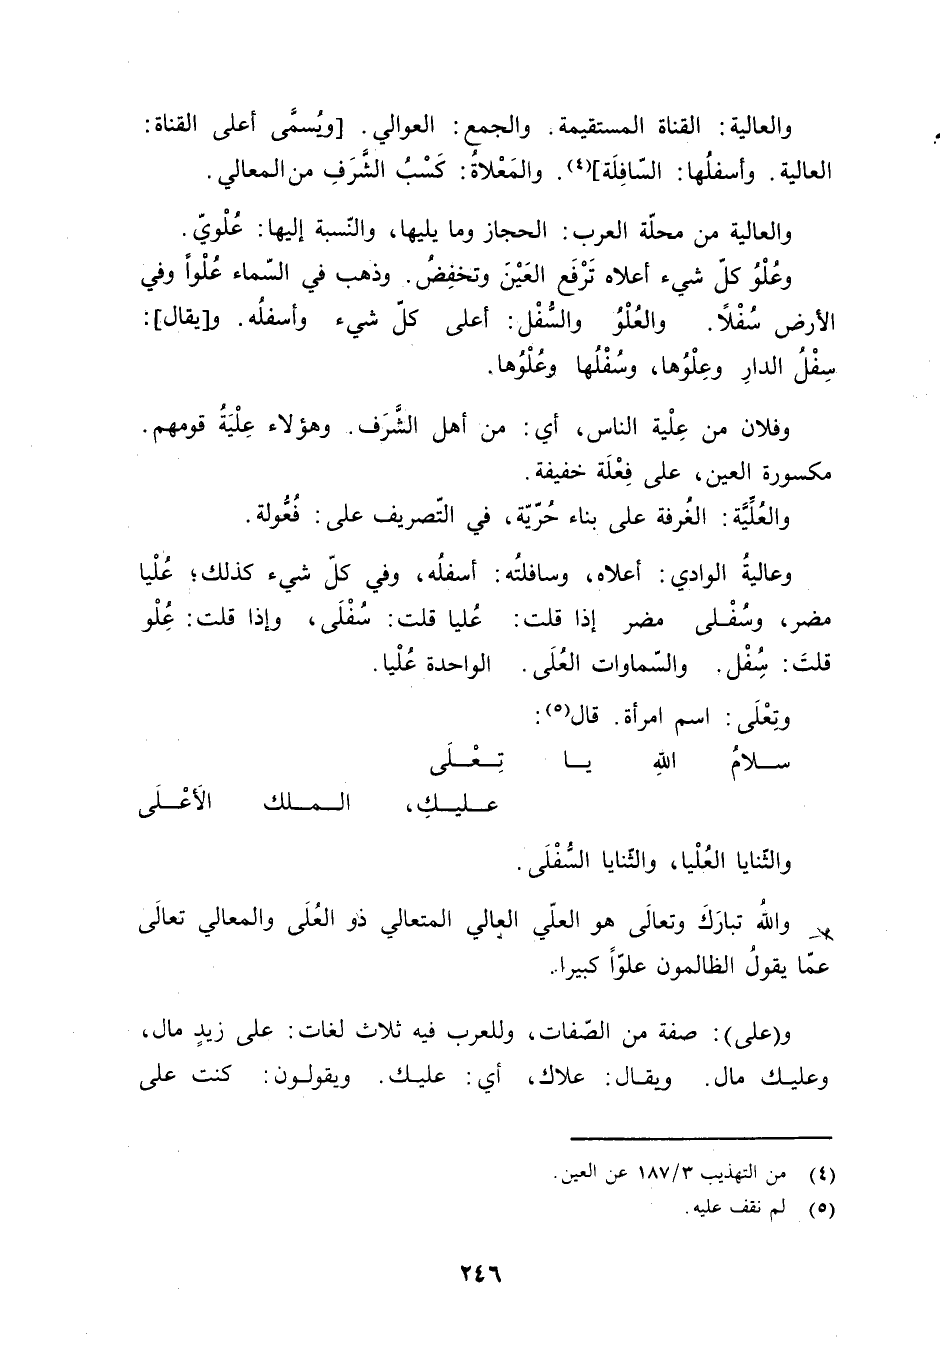 والعالية: القناة المستقيمة. والجمع: العوالي. [ويُسمَّى أعلى القناة:
العالية. وأسفلُها: السّافِلَة]<sup>(٤)</sup>. والمَعْلاةُ: كَسْبُ الشَّرَفِ من المعالي.
والعالية من محلّة العرب: الحجاز وما يليها، والنّسبة إليها: عُلْويّ.
وعُلْوُ كلّ شيء أعلاه تَرْفَع العَيْنَ وتخفِضُ. وذهب في السّماء عُلْواً وفي
الأرض سُفْلاً. والعُلْوُ والسُّفْل: أعلى كلّ شيء وأسفلُه. و[يقال]:
سِفْلُ الدارِ وعِلْوُها، وسُفْلُها وعُلْوُها.
وفلان من عِلْية الناس، أي: من أهل الشَّرَف. وهؤلاء عِلْيَةُ قومهم.
مكسورة العين، على فِعْلَة خفيفة.
والعُلِّيَّة: الغُرفة على بناء حُرّيّة، في التّصريف على: فُعُّولة.
وعاليةُ الوادي: أعلاه، وسافلتُه: أسفلُه، وفي كلّ شيء كذلك؛ عُلْيا
مضر، وسُفْلى مضر إذا قلت: عُليا قلت: سُفْلَى، وإذا قلت: عُِلْو
قلتَ: سُِفْل. والسّماوات العُلَى. الواحدة عُلْيا.
وتِعْلَى: اسم امرأة. قال<sup>(٥)</sup>:
سلامُ اللهِ يا تِعْلَى
عليكِ، الملك الأَعْلَى
والثّنايا العُلْيا، والثّنايا السُّفْلَى.
واللهُ تبارَكَ وتعالَى هو العلّي العالي المتعالي ذو العُلَى والمعالي تعالَى
عمّا يقولُ الظالمون علوّاً كبيرا.
و(على): صفة من الصّفات، وللعرب فيه ثلاث لغات: على زيدٍ مال،
وعليك مال. ويقال: علاك، أي: عليك. ويقولون: كنت على
(٤) من التهذيب ١٨٧/٣ عن العين.
(٥) لم نقف عليه.
٢٤٦